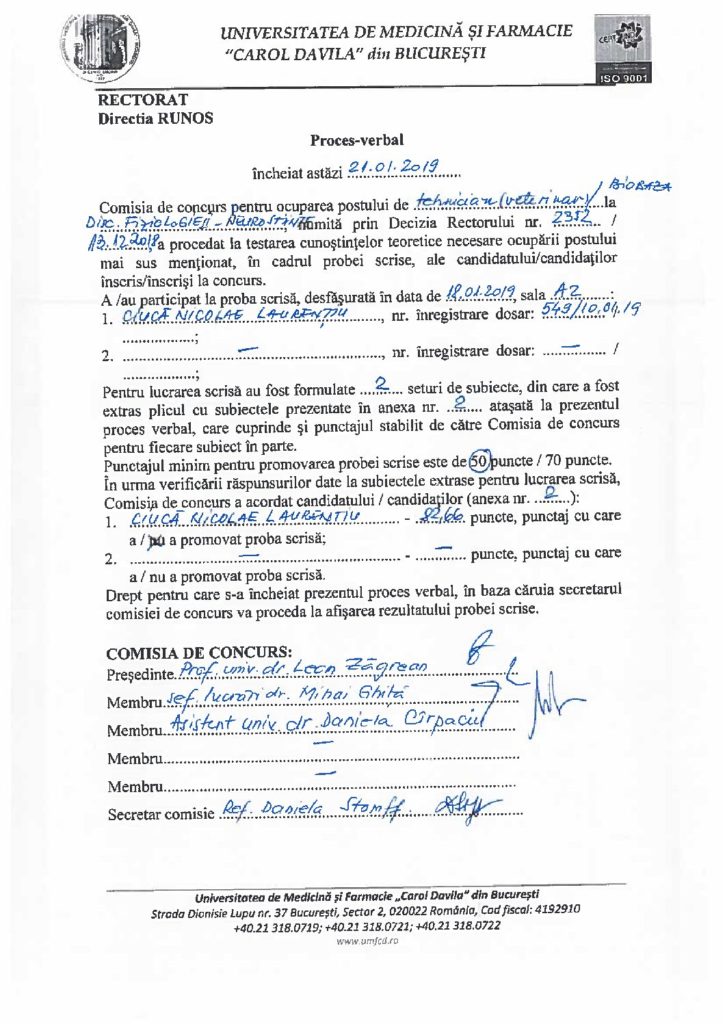 UNIVERSITATEA DE MEDICINĂ ȘI FARMACIE
"CAROL DAVILA" din BUCUREȘTI
ISO 9001
RECTORAT
Directia RUNOS
Proces-verbal
încheiat astăzi 21.01.2019
BIOBAZA
Comisia de concurs pentru ocuparea postului de tehnician (veterinar) / la
Disc. FIZIOLOGIE II - NEUROȘTIINȚE, numită prin Decizia Rectorului nr. 2352 /
13.12.2018, a procedat la testarea cunoștințelor teoretice necesare ocupării postului
mai sus menționat, în cadrul probei scrise, ale candidatului/candidaților
înscris/înscriși la concurs.
A /au participat la proba scrisă, desfășurată în data de 18.01.2019, sala A2 :
1. CIUCĂ NICOLAE LAURENȚIU, nr. înregistrare dosar: 549/10.01.19
;
2. —, nr. înregistrare dosar: — /
;
Pentru lucrarea scrisă au fost formulate 2 seturi de subiecte, din care a fost
extras plicul cu subiectele prezentate în anexa nr. 2 atașată la prezentul
proces verbal, care cuprinde și punctajul stabilit de către Comisia de concurs
pentru fiecare subiect în parte.
Punctajul minim pentru promovarea probei scrise este de 50 puncte / 70 puncte.
În urma verificării răspunsurilor date la subiectele extrase pentru lucrarea scrisă,
Comisia de concurs a acordat candidatului / candidaților (anexa nr. 2):
1. CIUCĂ NICOLAE LAURENTIU - 82,66 puncte, punctaj cu care
a / nu a promovat proba scrisă;
2. — - — puncte, punctaj cu care
a / nu a promovat proba scrisă.
Drept pentru care s-a încheiat prezentul proces verbal, în baza căruia secretarul
comisiei de concurs va proceda la afișarea rezultatului probei scrise.
COMISIA DE CONCURS:
Președinte Prof. univ. dr. Leon Zăgrean
Membru Șef lucrări dr. Mihai Ghiță
Membru Asistent univ. dr. Daniela Cîrpaciu
Membru —
Membru —
Secretar comisie Ref. Daniela Stamff
Universitatea de Medicină și Farmacie „Carol Davila" din București
Strada Dionisie Lupu nr. 37 București, Sector 2, 020022 România, Cod fiscal: 4192910
+40.21 318.0719; +40.21 318.0721; +40.21 318.0722
www.umfcd.ro